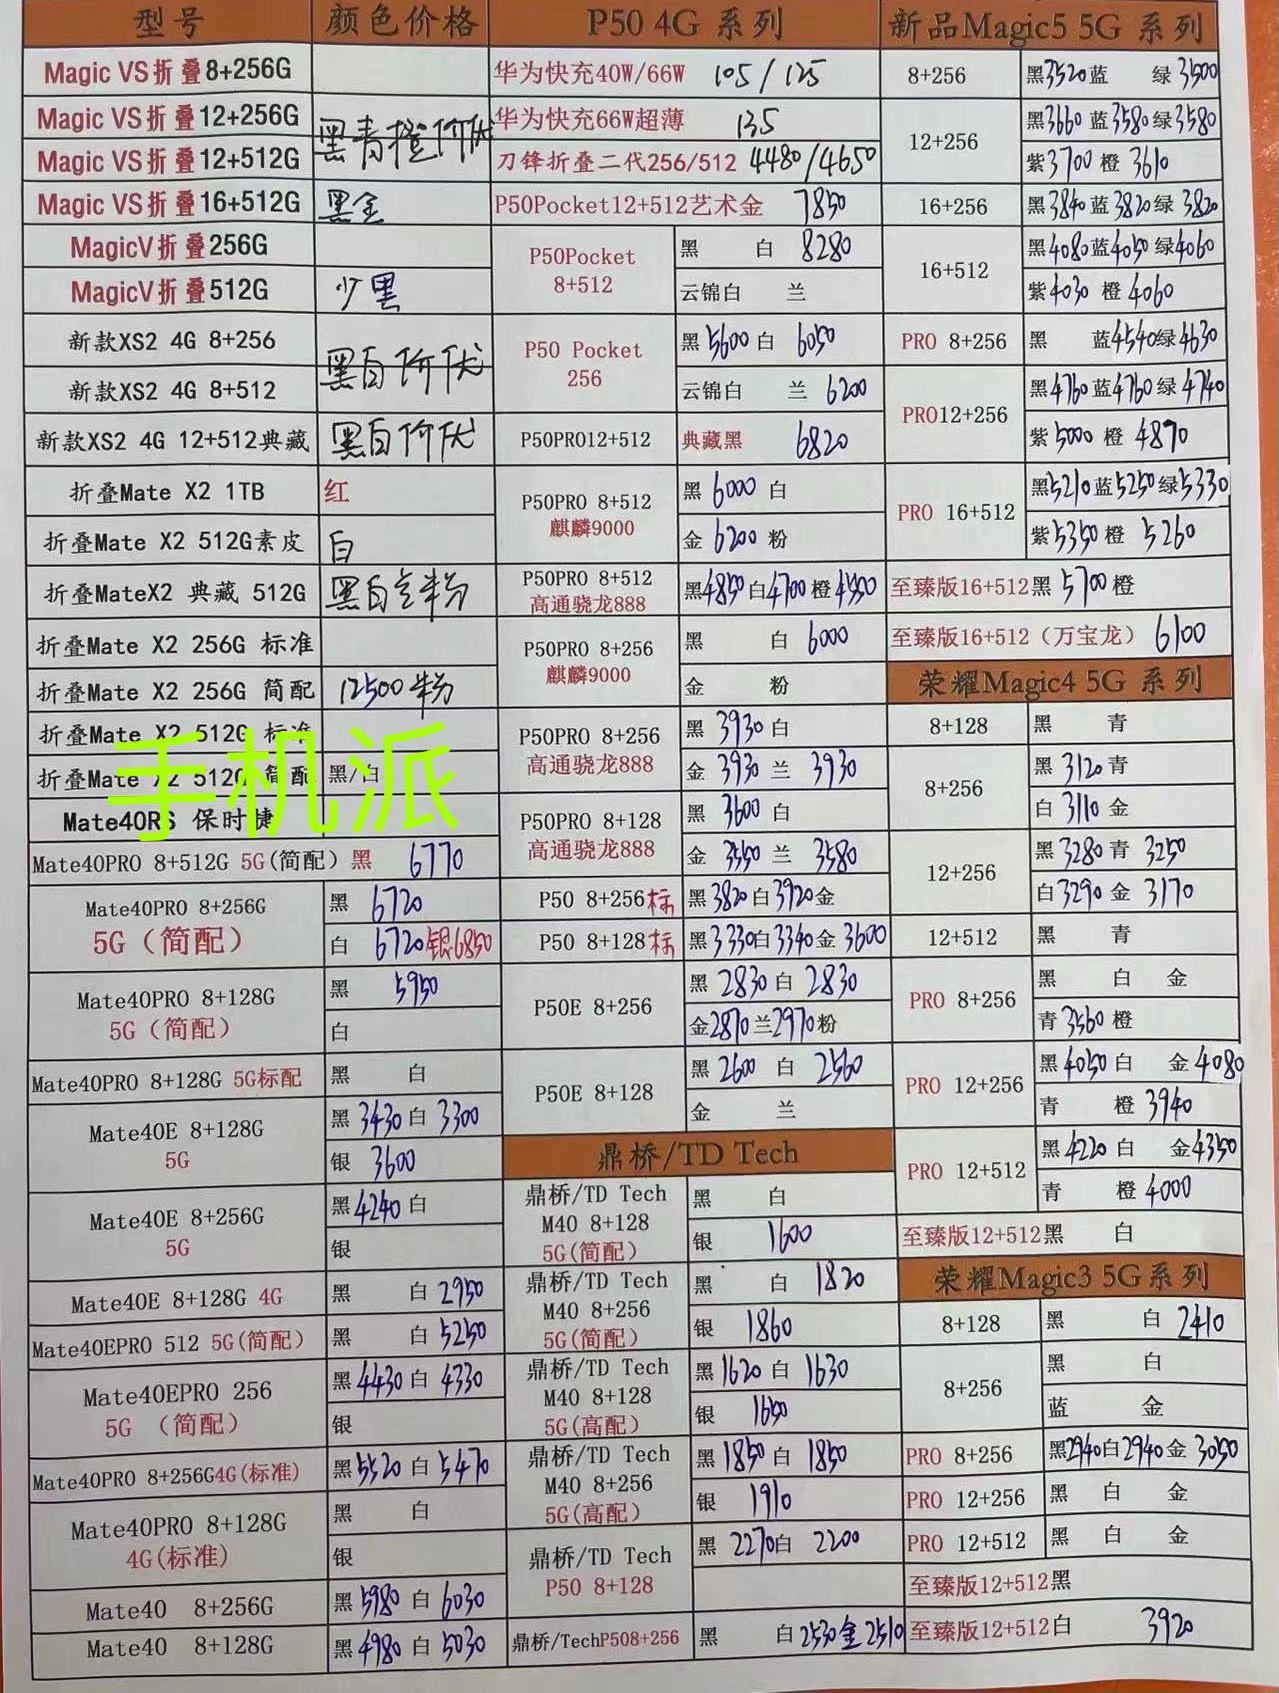 型号 颜色价格
Magic VS折叠8+256G
Magic VS折叠12+256G
黑青橙价优
Magic VS折叠12+512G
Magic VS折叠16+512G 黑金
MagicV折叠256G
MagicV折叠512G 少黑
新款XS2 4G 8+256
黑白价优
新款XS2 4G 8+512
新款XS2 4G 12+512典藏 黑白价优
折叠Mate X2 1TB 红
折叠Mate X2 512G素皮 白
折叠MateX2 典藏 512G 黑白 粉
折叠Mate X2 256G 标准
折叠Mate X2 256G 简配 12500粉
折叠Mate X2 512G 标准
折叠Mate X2 512G 简配 黑/白
手机派
Mate40RS 保时捷
Mate40PRO 8+512G 5G(简配) 黑 6770
Mate40PRO 8+256G
5G(简配)
黑 6720
白 6720银6850
Mate40PRO 8+128G
5G(简配)
黑 5950
白
Mate40PRO 8+128G 5G标配 黑 白
Mate40E 8+128G
5G
黑 3430 白 3300
银 3600
Mate40E 8+256G
5G
黑 4240 白
银
Mate40E 8+128G 4G 黑 白 2950
Mate40EPRO 512 5G(简配) 黑 白 5250
Mate40EPRO 256
5G (简配)
黑 4430 白 4330
银
Mate40PRO 8+256G4G(标准) 黑 5520 白 5470
Mate40PRO 8+128G
4G(标准)
黑 白
银
Mate40 8+256G 黑 5980 白 6030
Mate40 8+128G 黑 4980 白 5030
P50 4G 系列
华为快充40W/66W 105/125
华为快充66W超薄 135
刀锋折叠二代256/512 4480/4650
P50Pocket12+512艺术金 7850
P50Pocket
8+512
黑 白 8280
云锦白 兰
P50 Pocket
256
黑 5600 白 6050
云锦白 兰 6200
P50PRO12+512 典藏黑 6820
P50PRO 8+512
麒麟9000
黑 6000 白
金 6200 粉
P50PRO 8+512
高通骁龙888
黑4850 白4700 橙4550
P50PRO 8+256
麒麟9000
黑 白 6000
金 粉
P50PRO 8+256
高通骁龙888
黑 3930 白
金 3930 兰 3930
P50PRO 8+128
高通骁龙888
黑 3600 白
金 3550 兰 3580
P50 8+256标 黑 3820 白 3920 金
P50 8+128标 黑 3330 白 3340 金 3600
P50E 8+256
黑 2830 白 2830
金2870兰2970粉
P50E 8+128
黑 2600 白 2560
金 兰
鼎桥/TD Tech
鼎桥/TD Tech
M40 8+128
5G(简配)
黑 白
银 1600
鼎桥/TD Tech
M40 8+256
5G(简配)
黑 白 1820
银 1860
鼎桥/TD Tech
M40 8+128
5G(高配)
黑 1620 白 1630
银 1650
鼎桥/TD Tech
M40 8+256
5G(高配)
黑 1850 白 1850
银 1910
鼎桥/TD Tech
P50 8+128
黑 2270白 2200
鼎桥/TechP508+256 黑 白2530金2510
新品Magic5 5G 系列
8+256 黑3520蓝 绿3500
12+256
黑3660 蓝3580绿3580
紫3700 橙 3610
16+256 黑3840蓝3820绿3820
16+512
黑4080蓝4050绿4060
紫4030 橙4060
PRO 8+256 黑 蓝4540绿4630
PRO12+256
黑4760蓝4760绿4740
紫5000 橙 4870
PRO 16+512
黑5210蓝5250绿5330
紫5350橙 5260
至臻版16+512黑 5700橙
至臻版16+512(万宝龙) 6100
荣耀Magic4 5G 系列
8+128 黑 青
8+256
黑 3120青
白 3110 金
12+256
黑 3280青 3250
白3290金 3170
12+512 黑 青
PRO 8+256
黑 白 金
青3560橙
PRO 12+256
黑4050白 金4080
青 橙 3940
PRO 12+512
黑4220白 金4350
青 橙 4000
至臻版12+512黑 白
荣耀Magic3 5G系列
8+128 黑 白 2410
8+256
黑 白
蓝 金
PRO 8+256 黑2940白2940金 3050
PRO 12+256 黑 白 金
PRO 12+512 黑 白 金
至臻版12+512黑
至臻版12+512白 3920